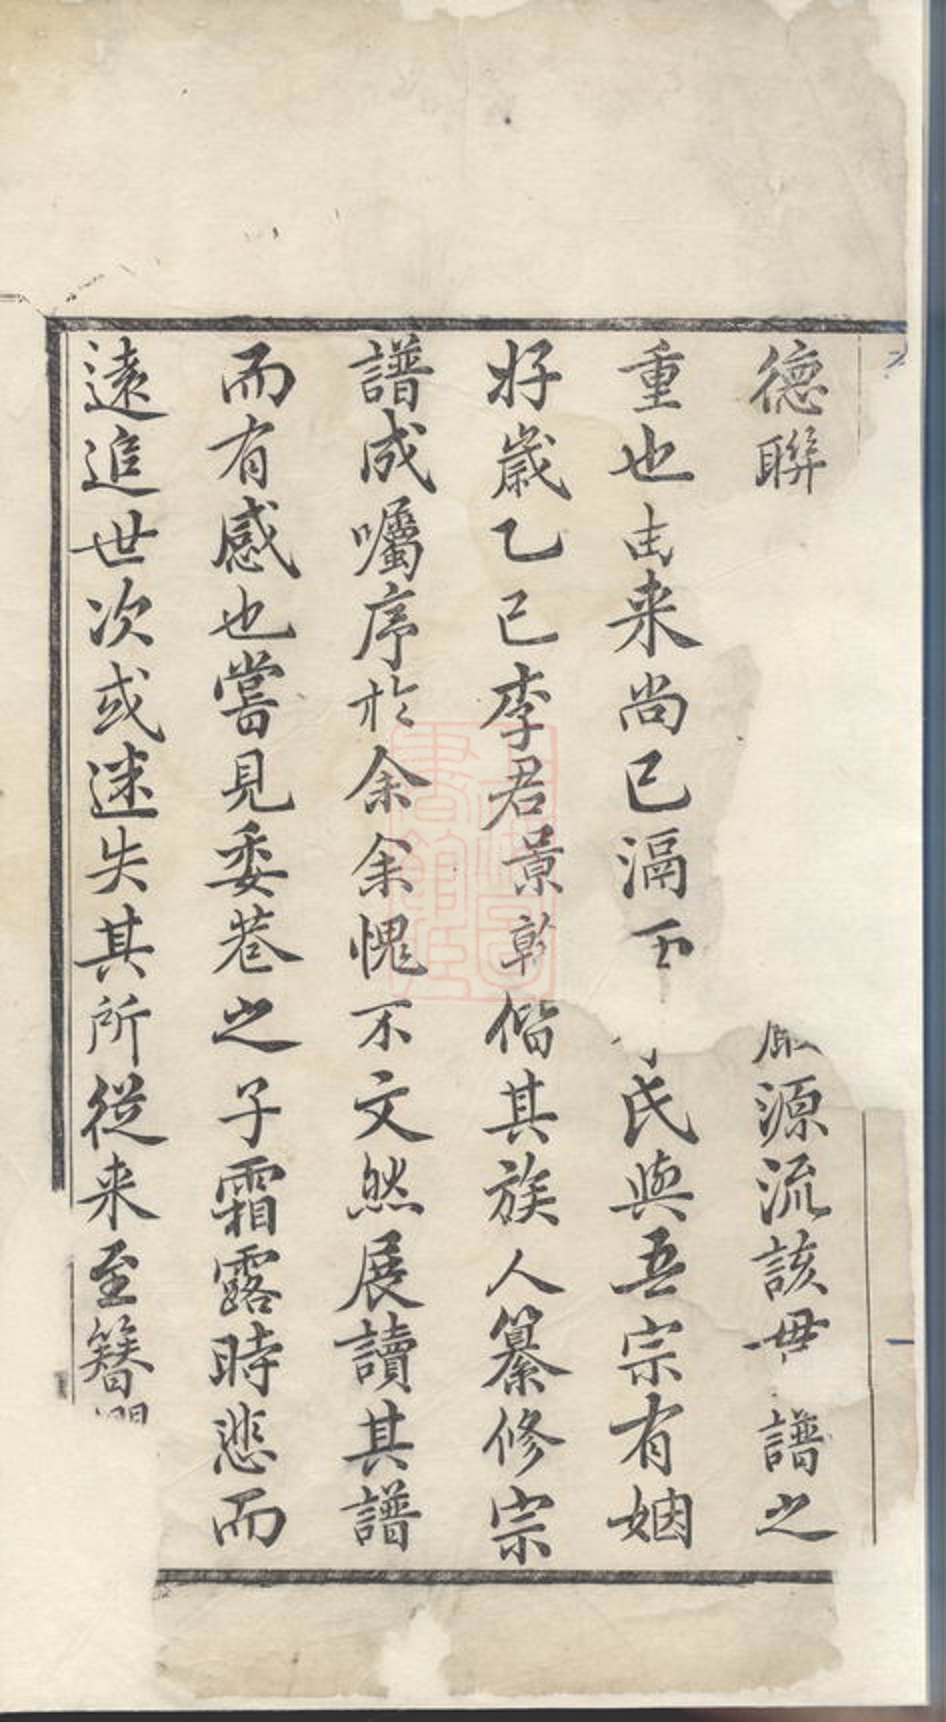 德聯源流該世譜之
重也由来尚已滆氏與吾宗有姻
好歲乙已李君景斡偕其族人纂修宗
譜成囑序於余余愧不文然展讀其譜
而有感也嘗見委巷之子霜露時悲而
遠追世次或迷失其所從来至簪